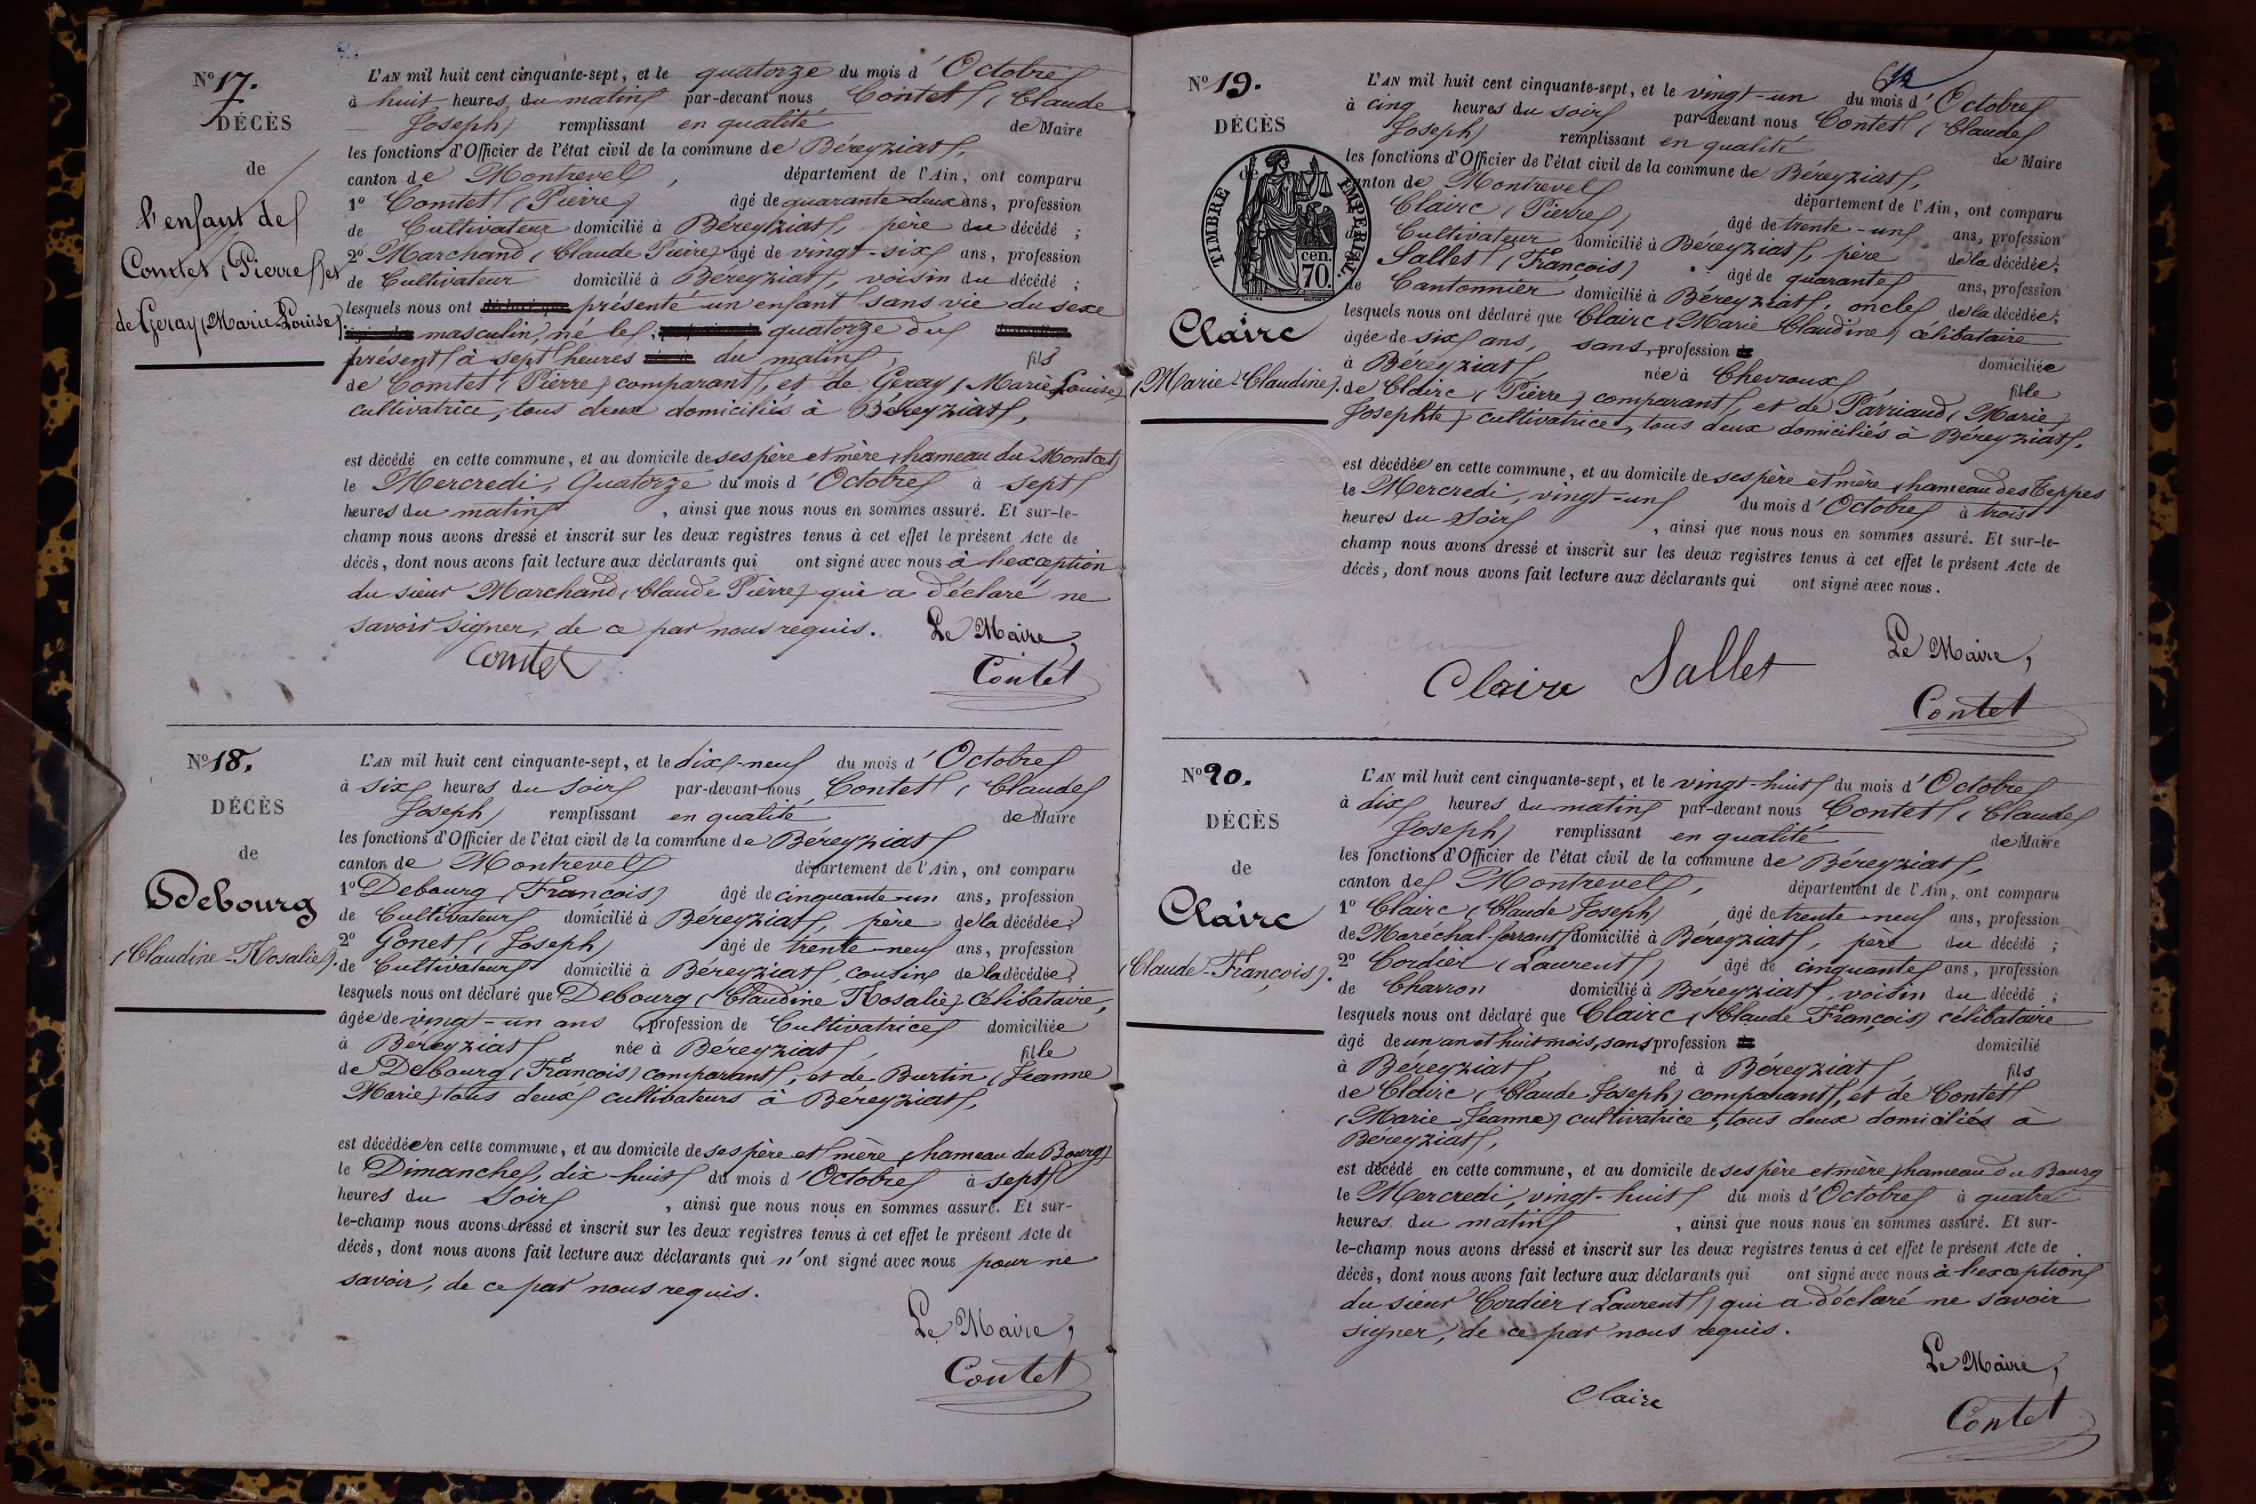 N.º 17.
DÉCÈS
de
l'enfant de
Comtet (Pierre) et
de Geray (Marie Louise).
L'AN mil huit cent cinquante-sept, et le quatorze du mois d'Octobre
à huit heures du matin par-devant nous Contet (Claude
Joseph) remplissant en qualité de Maire
les fonctions d'Officier de l'état civil de la commune de Béreyziat,
canton de Montrevel, département de l'Ain, ont comparu
1º Comtet (Pierre) âgé de quarante-deux ans, profession
de Cultivateur domicilié à Béreyziat, père du décédé ;
2º Marchand (Claude Pierre) âgé de vingt-six ans, profession
de Cultivateur domicilié à Béreyziat, voisin du décédé ;
lesquels nous ont présenté un enfant sans vie du sexe
masculin, né le quatorze du
présent à sept heures du matin, fils
de Comtet (Pierre) comparant, et de Geray (Marie Louise)
cultivatrice, tous deux domiciliés à Béreyziat,
est décédé en cette commune, et au domicile de ses père et mère (hameau du Montcet)
le Mercredi, Quatorze du mois d'Octobre à sept
heures du matin, ainsi que nous nous en sommes assuré. Et sur-le-
champ nous avons dressé et inscrit sur les deux registres tenus à cet effet le présent Acte de
décès, dont nous avons fait lecture aux déclarants qui ont signé avec nous à l'exception
du sieur Marchand (Claude Pierre) qui a déclaré ne
savoir signer, de ce par nous requis. Le Maire,
Comtet Contet
N.º 18.
DÉCÈS
de
Debourg
(Claudine-Rosalie).
L'AN mil huit cent cinquante-sept, et le dix-neuf du mois d'Octobre
à six heures du soir par-devant nous Contet (Claude
Joseph) remplissant en qualité de Maire
les fonctions d'Officier de l'état civil de la commune de Béreyziat
canton de Montrevel département de l'Ain, ont comparu
1º Debourg (François) âgé de cinquante-un ans, profession
de Cultivateur domicilié à Béreyziat, père de la décédée ;
2º Gonet (Joseph) âgé de trente-neuf ans, profession
de Cultivateur domicilié à Béreyziat, cousin de la décédée ;
lesquels nous ont déclaré que Debourg (Claudine Rosalie) Célibataire,
âgée de vingt-un ans, profession de Cultivatrice domiciliée
à Béreyziat, née à Béreyziat, fille
de Debourg (François) comparant, et de Burtin (Jeanne
Marie) tous deux cultivateurs à Béreyziat,
est décédée en cette commune, et au domicile de ses père et mère (hameau du Bourg)
le Dimanche, dix-huit du mois d'Octobre à sept
heures du Soir, ainsi que nous nous en sommes assuré. Et sur-
le-champ nous avons dressé et inscrit sur les deux registres tenus à cet effet le présent Acte de
décès, dont nous avons fait lecture aux déclarants qui n'ont signé avec nous pour ne
savoir, de ce par nous requis.
Le Maire,
Contet
N.º 19.
DÉCÈS
de
TIMBRE IMPÉRIAL.
cen.
70.
Claire
(Marie-Claudine).
L'AN mil huit cent cinquante-sept, et le vingt-un du mois d'Octobre
à cinq heures du soir par-devant nous Contet (Claude
Joseph) remplissant en qualité de Maire
les fonctions d'Officier de l'état civil de la commune de Béreyziat,
canton de Montrevel département de l'Ain, ont comparu
Claire (Pierre) âgé de trente-un ans, profession
de Cultivateur domicilié à Béreyziat, père de la décédée ;
Sallet (François) âgé de quarante ans, profession
de Cantonnier domicilié à Béreyziat, oncle de la décédée ;
lesquels nous ont déclaré que Claire (Marie Claudine) célibataire
âgée de six ans, sans profession domiciliée
à Béreyziat, née à Chevroux, fille
de Claire (Pierre) comparant, et de Parriaud (Marie
Josephte) cultivatrice, tous deux domiciliés à Béreyziat,
est décédée en cette commune, et au domicile de ses père et mère (hameau des Teppes
le Mercredi, vingt-un du mois d'Octobre à trois
heures du Soir, ainsi que nous nous en sommes assuré. Et sur-le-
champ nous avons dressé et inscrit sur les deux registres tenus à cet effet le présent Acte de
décès, dont nous avons fait lecture aux déclarants qui ont signé avec nous.
Le Maire,
Claire Sallet Contet
N.º 20.
DÉCÈS
de
Claire
(Claude-François).
L'AN mil huit cent cinquante-sept, et le vingt-huit du mois d'Octobre
à dix heures du matin par-devant nous Contet (Claude
Joseph) remplissant en qualité de Maire
les fonctions d'Officier de l'état civil de la commune de Béreyziat,
canton de Montrevel, département de l'Ain, ont comparu
1º Claire (Claude Joseph) âgé de trente-neuf ans, profession
de Maréchal-ferrant domicilié à Béreyziat, père du décédé ;
2º Cordier (Laurent) âgé de cinquante ans, profession
de Charron domicilié à Béreyziat, voisin du décédé ;
lesquels nous ont déclaré que Claire (Claude François) célibataire
âgé de un an et huit mois, sans profession domicilié
à Béreyziat, né à Béreyziat, fils
de Claire (Claude Joseph) comparant, et de Contet
(Marie-Jeanne) cultivatrice, tous deux domiciliés à
Béreyziat,
est décédé en cette commune, et au domicile de ses père et mère, hameau du Bourg
le Mercredi, vingt-huit du mois d'Octobre à quatre
heures du matin, ainsi que nous nous en sommes assuré. Et sur-
le-champ nous avons dressé et inscrit sur les deux registres tenus à cet effet le présent Acte de
décès, dont nous avons fait lecture aux déclarants qui ont signé avec nous à l'exception
du sieur Cordier (Laurent) qui a déclaré ne savoir
signer, de ce par nous requis.
Le Maire,
Claire Contet